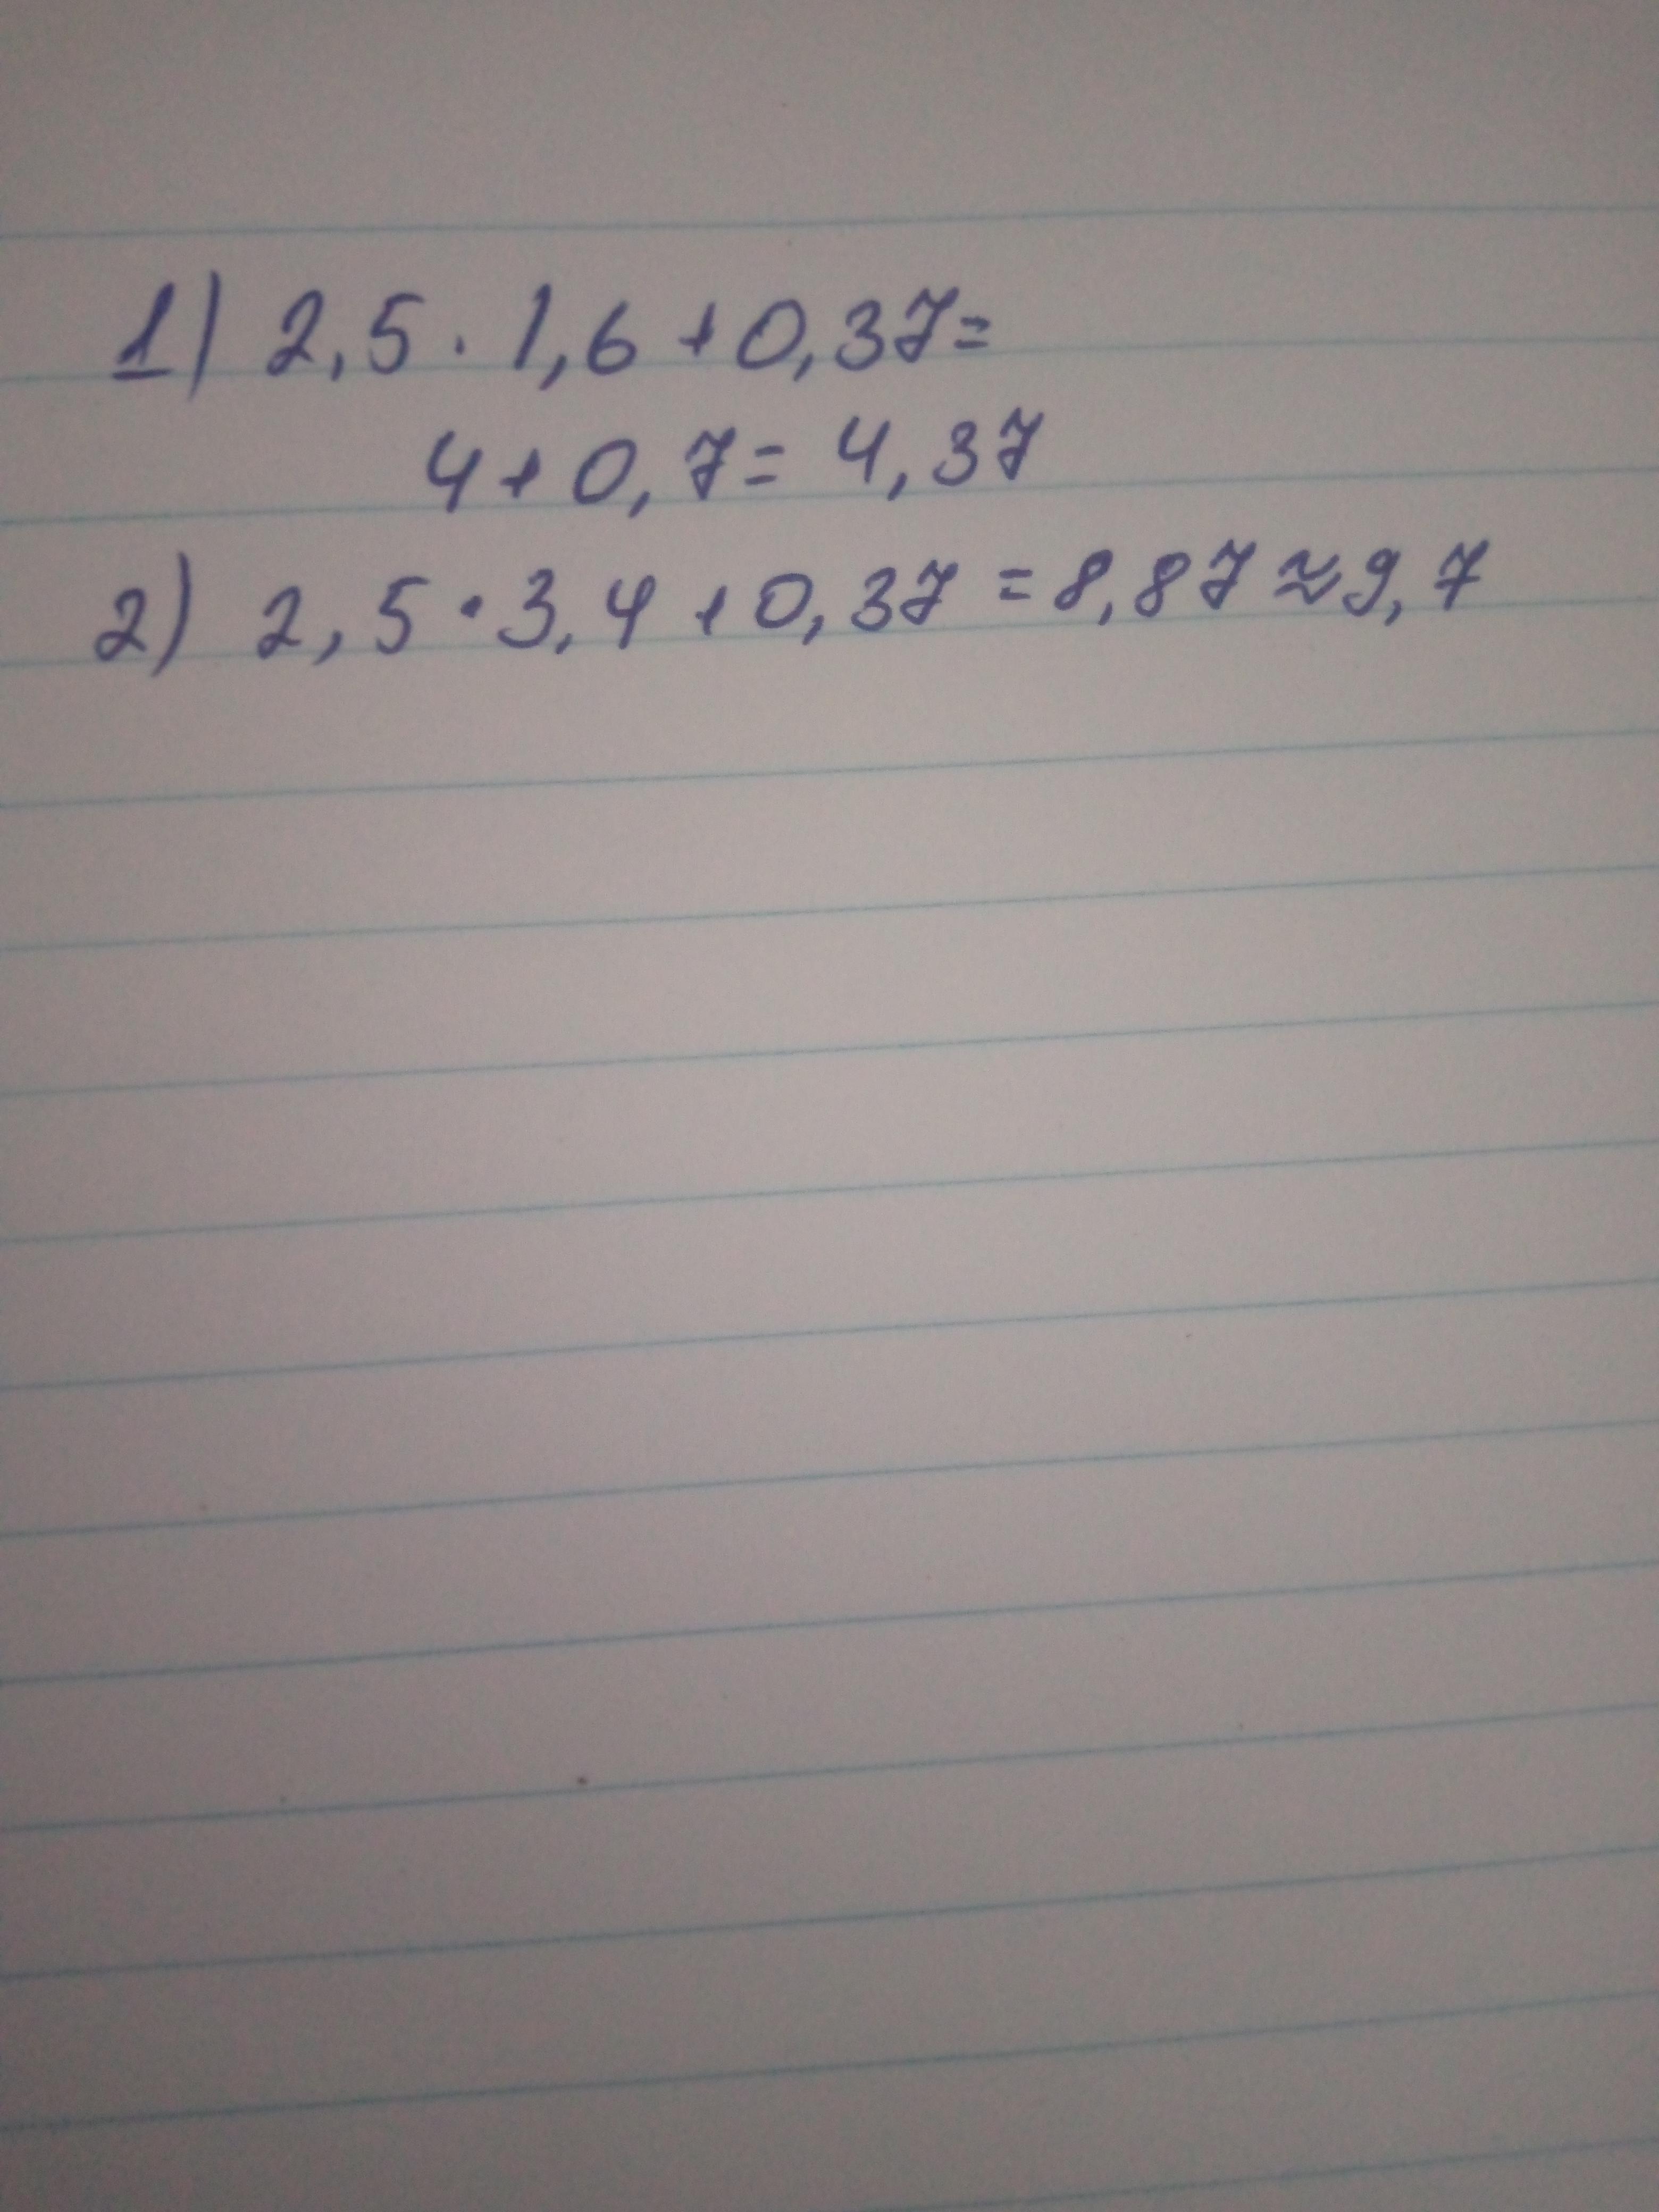 1) 2,5 · 1,6 + 0,37 =
4 + 0,7 = 4,37
2) 2,5 · 3,4 + 0,37 = 8,87 ≈ 9,7